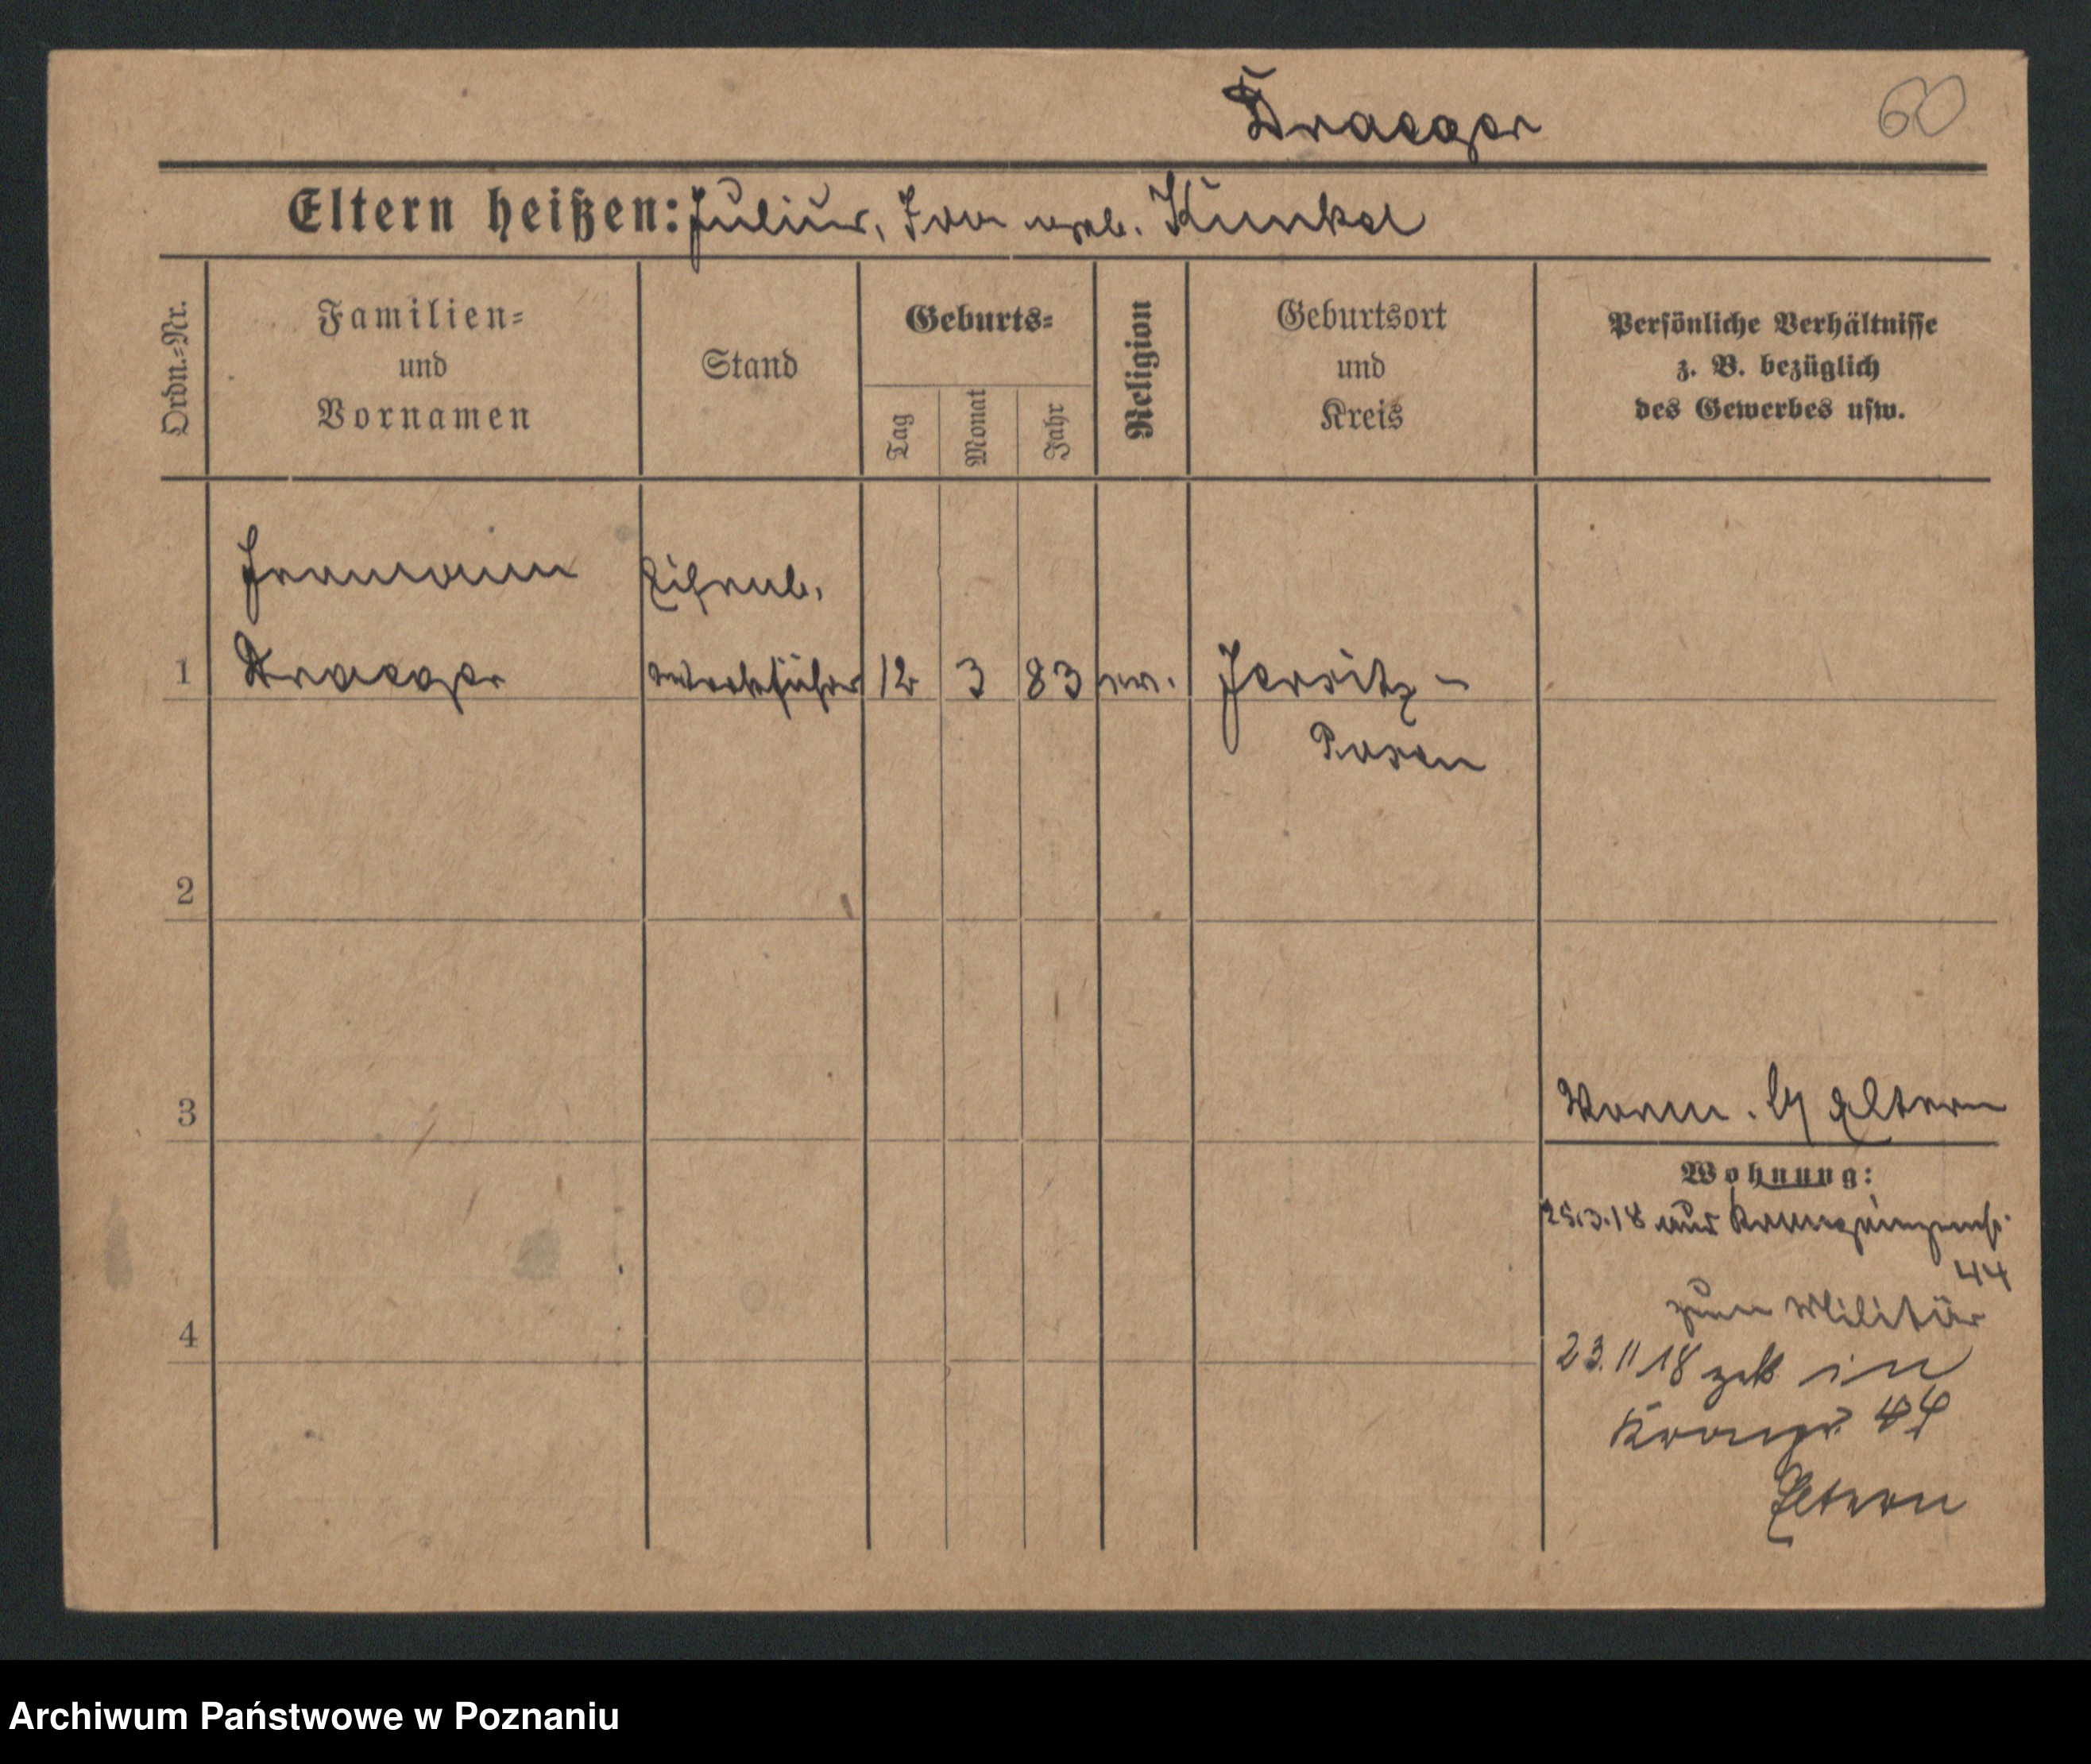 Draeger
60
Eltern heißen: Julius, Ida geb. Kunkel
Ordn.-Nr.
Familien-
und
Vornamen
Stand
Geburts-
Tag
Monat
Jahr
Religion
Geburtsort
und
Kreis
Persönliche Verhältnisse
z. B. bezüglich
des Gewerbes usw.
Hermann
1
Draeger
12
3
83
ev.
Jersitz-
Posen
2
3
Eltern
Wohnung:
25.3.18 aus Kronprinzenst.
44
zum Militär
4
23.11.18 zck in
Kronpr. 44
Eltern
Archiwum Państwowe w Poznaniu